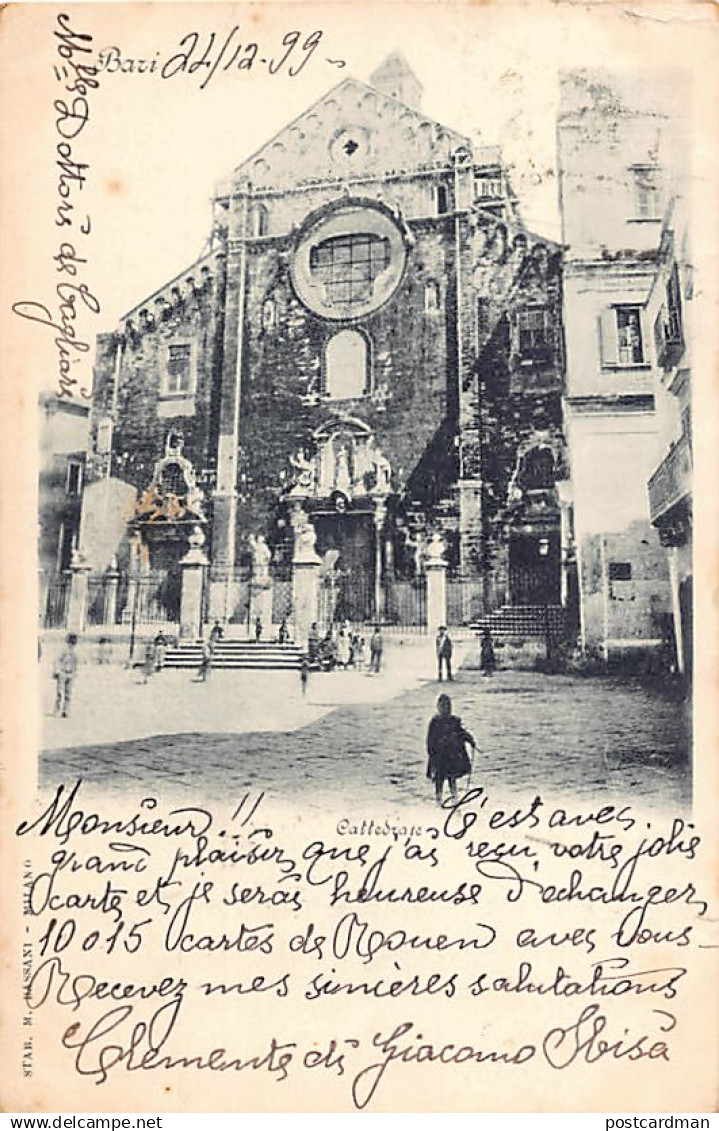 Bari 21/12.99
Mlle Dottors de Cagliari
Cattedrale
Monsieur !! C'est avec
grand plaisir que j'ai reçu votre jolie
carte et je serai heureuse d'echanger
10 o 15 cartes de Rouen avec vous-
Recevez mes sincères salutations
Clemente di Giacomo Sbisà
STAB. M. BASSANI - MILANO
postcardman